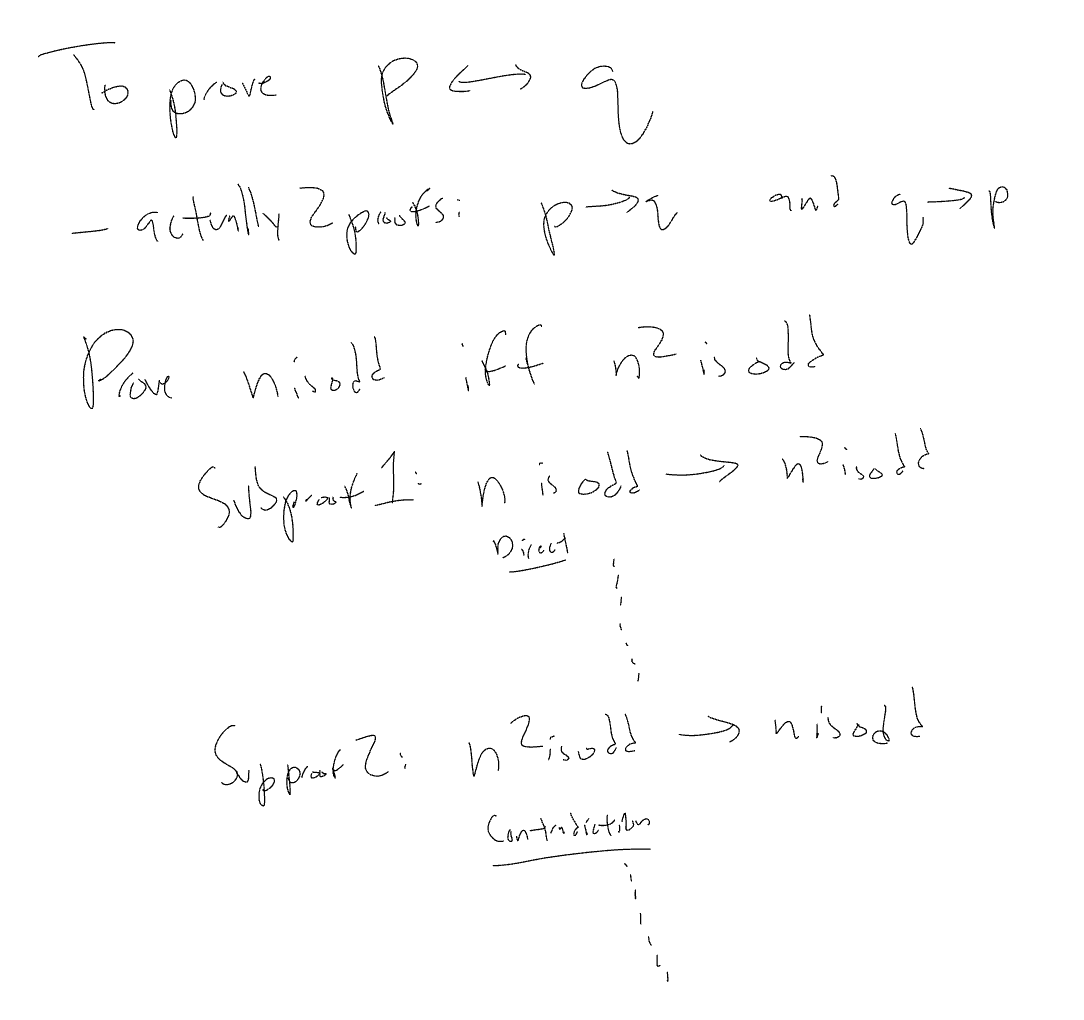 To prove p ↔ q
– actually 2 proofs: p → q and q → p
Prove n is odd iff n² is odd
Subproof 1: n is odd → n² is odd
Direct
Subproof 2: n² is odd → n is odd
Contradiction